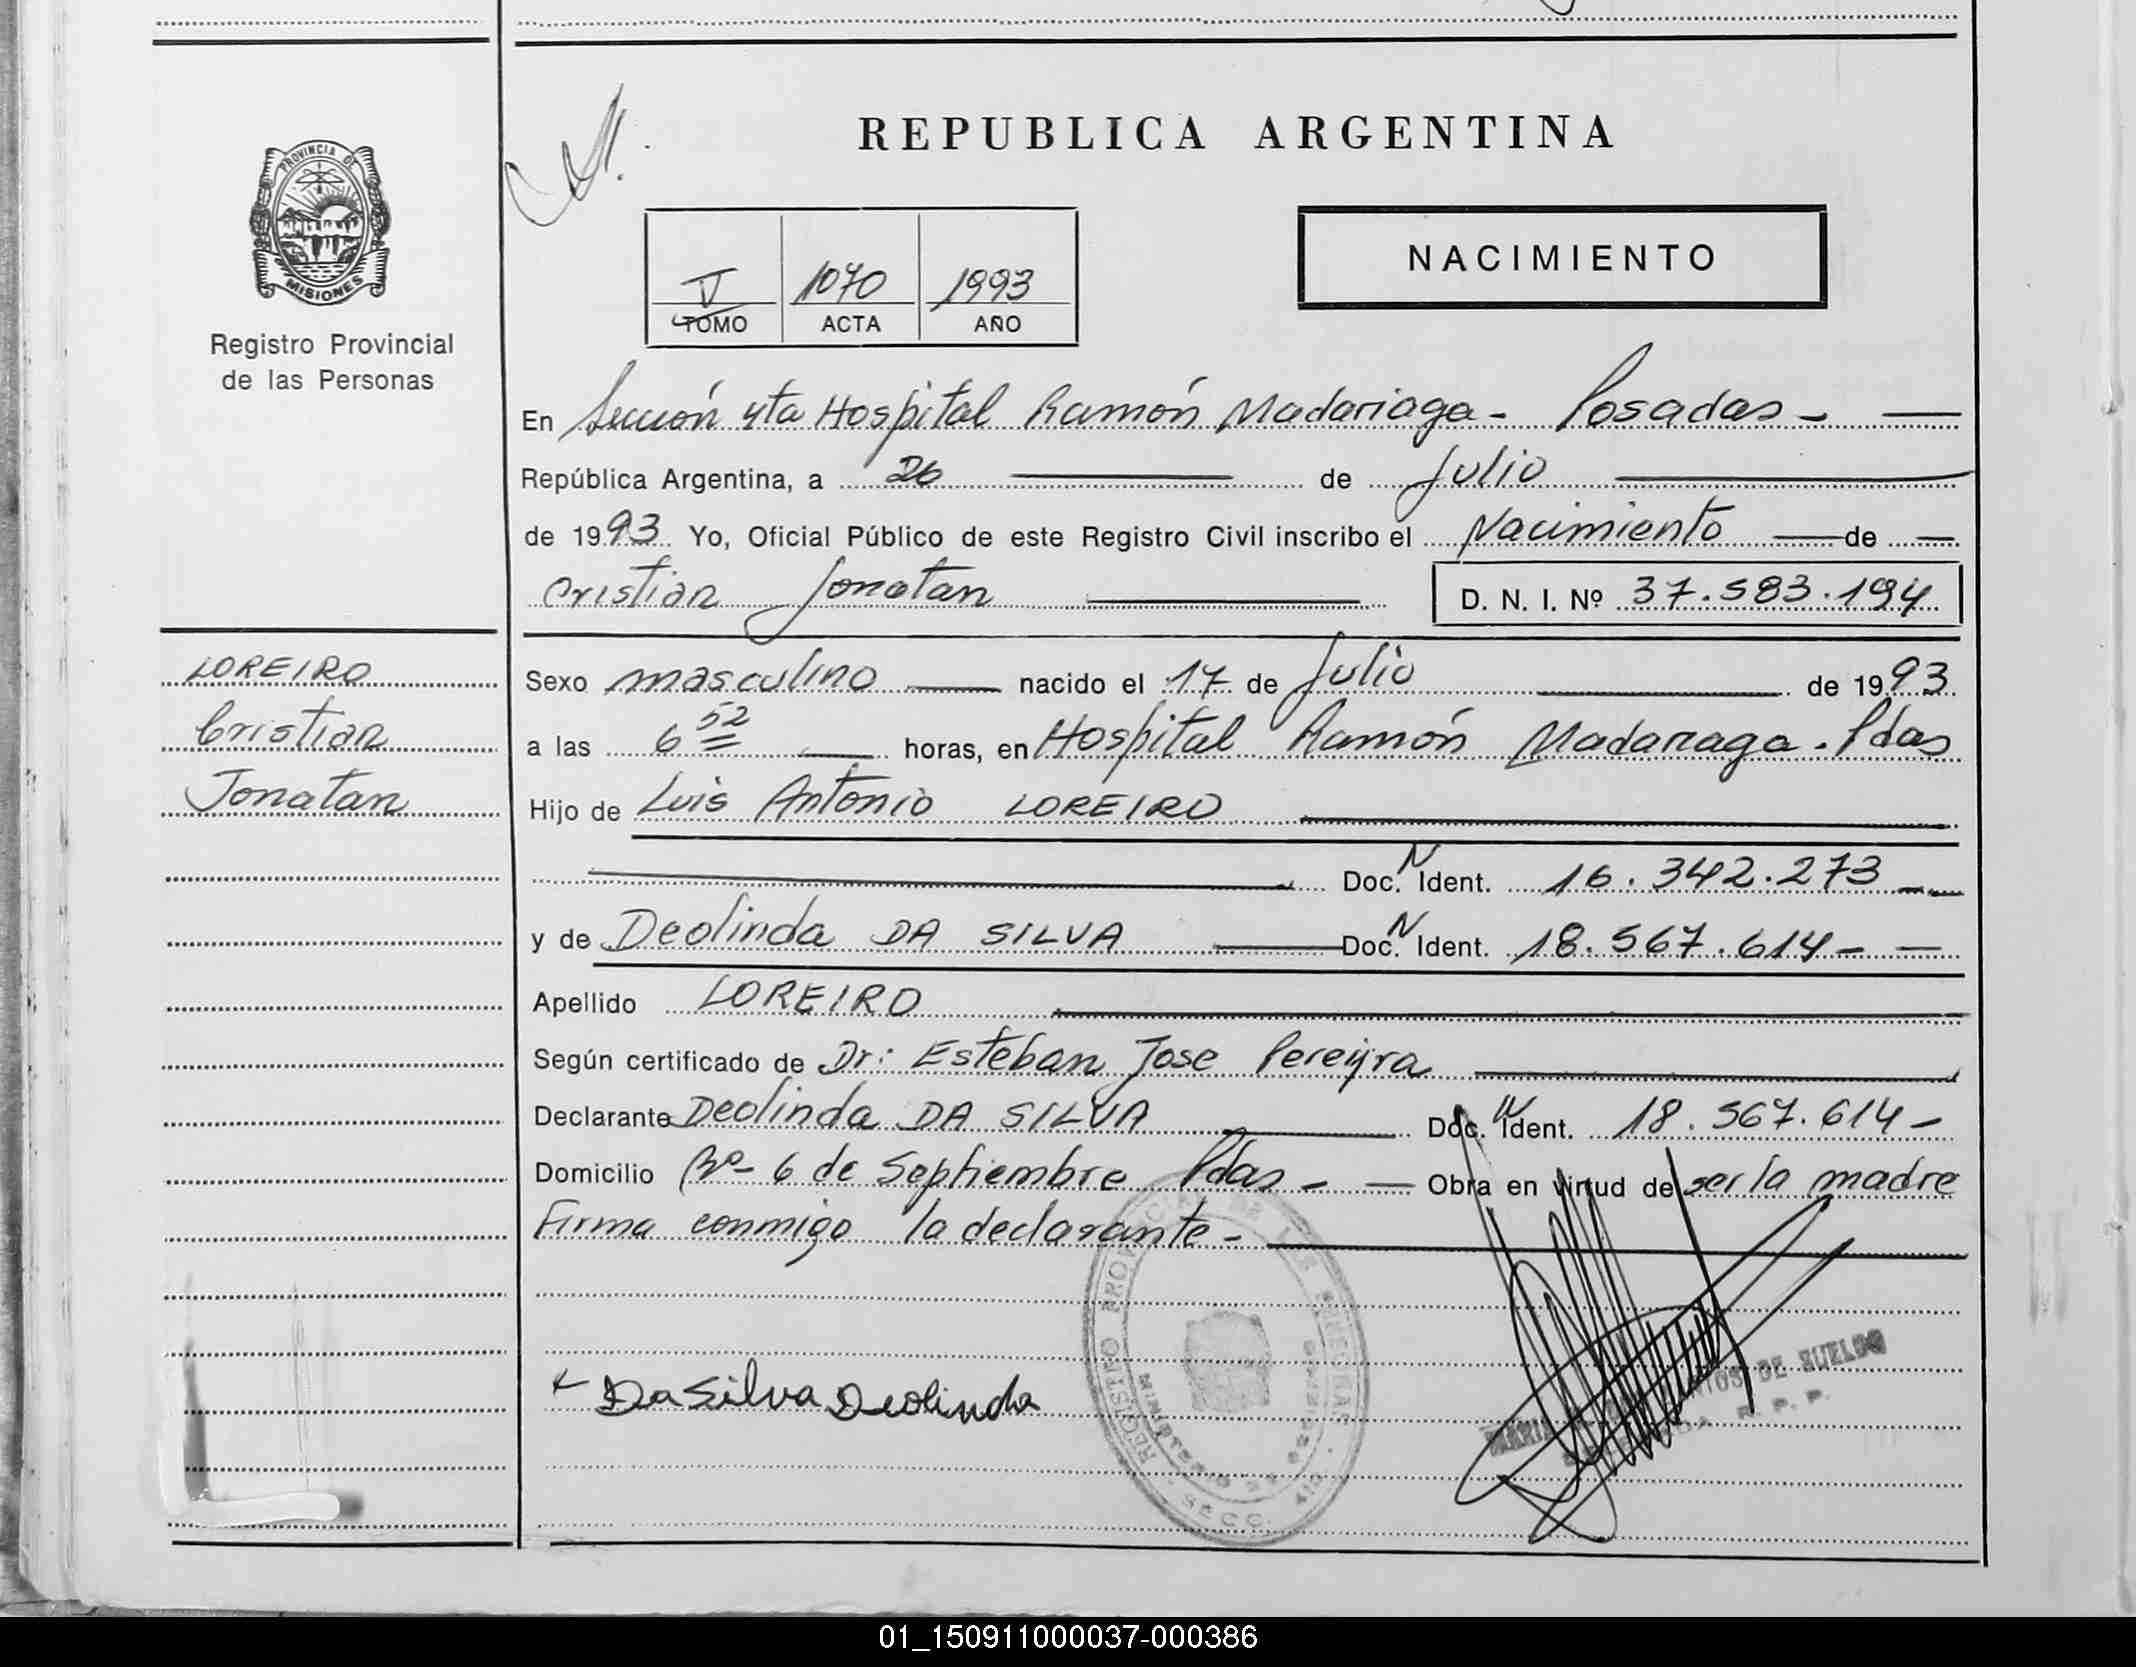 REPUBLICA ARGENTINA
PROVINCIA DE
MISIONES
Registro Provincial
de las Personas
V 1070 1993
TOMO ACTA AÑO
NACIMIENTO
En Sección 4ta Hospital Ramón Madariaga - Posadas -
República Argentina, a 26 de Julio
de 1993 Yo, Oficial Público de este Registro Civil inscribo el Nacimiento de
Cristian Jonatan D. N. I. Nº 37.583.194
LOREIRO
Cristian
Jonatan
Sexo masculino nacido el 17 de Julio de 1993
a las 6 52 horas, en Hospital Ramón Madariaga. Pdas
Hijo de Luis Antonio LOREIRO
Doc. N Ident. 16.342.273
y de Deolinda DA SILVA Doc. N Ident. 18.567.614 -
Apellido LOREIRO
Según certificado de Dr: Esteban Jose Pereyra
Declarante Deolinda DA SILVA Doc. N Ident. 18.567.614 -
Domicilio Bº - 6 de Septiembre Pdas - Obra en virtud de ser la madre
Firma conmigo la declarante -
Da Silva Deolinda
REGISTRO PROVINCIAL DE LAS PERSONAS
MINISTERIO DE GOBIERNO
SECC. 4ta.
MARIA DE SUELDO
R. P. P.
01_150911000037-000386